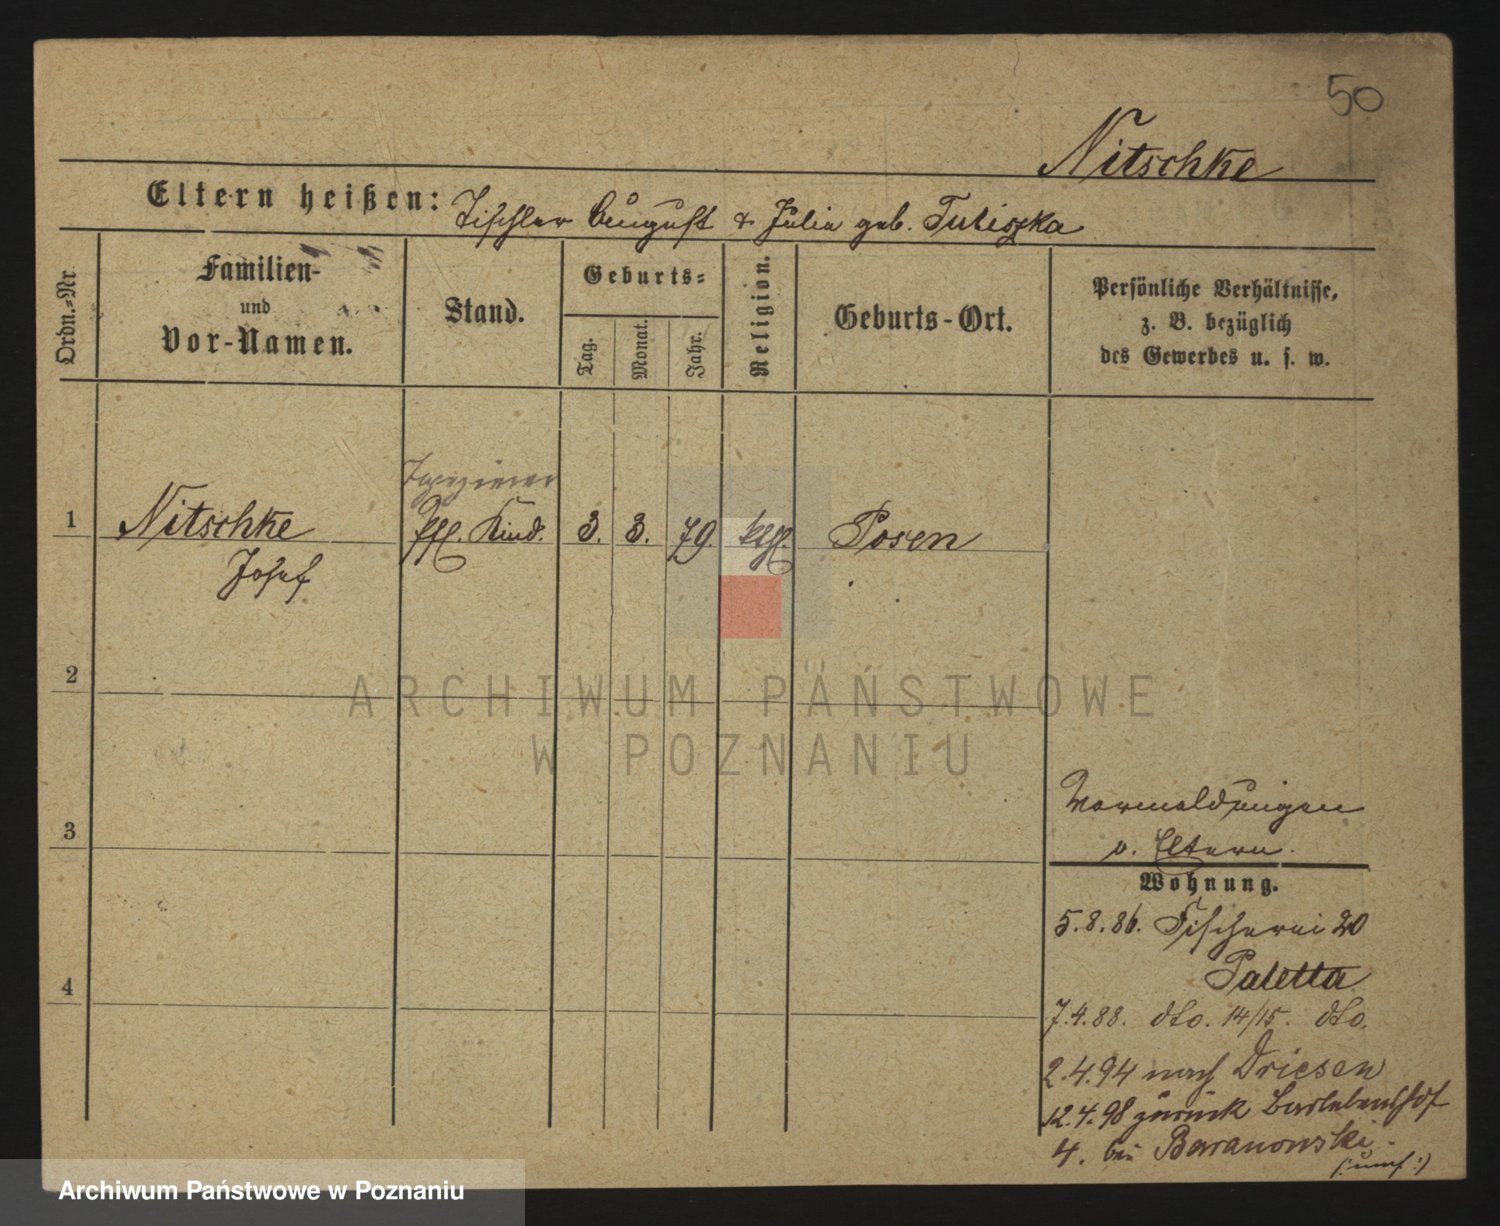 50
Nitschke
Eltern heißen: Tischler August & Julia geb. Tuliszka
Ordn.-Nr.
Familien-
und
Vor-Namen.
Stand.
Geburts-
Tag.
Monat.
Jahr.
Religion.
Geburts-Ort.
Persönliche Verhältnisse,
z. B. bezüglich
des Gewerbes u. s. w.
Tapezierer
1 Nitschke Pfl. Kind. 3. 3. 79. ktl. Posen
Josef
2
ARCHIWUM PAŃSTWOWE
W POZNANIU
Vormeldungen
3
v. Eltern.
Wohnung.
5.8.86. Fischerei 20
Paletta
4
7.4.88. dto. 14/15. dto.
2.4.94 nach Driesen
12.4.98 zurück Barlebenshof
4. bei Baranowski.
Archiwum Państwowe w Poznaniu